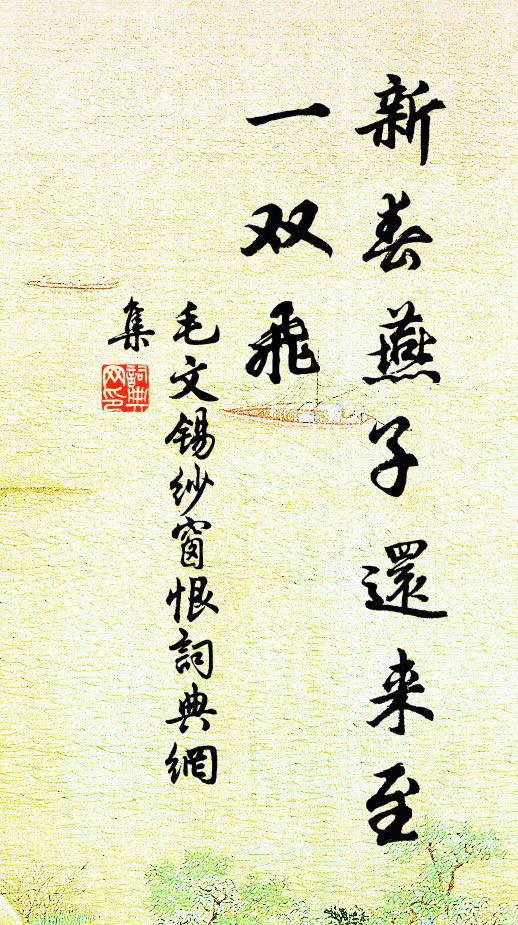 新春燕子還来至
一双飞
毛文锡纱窗恨詞典網
集
詞典
网印